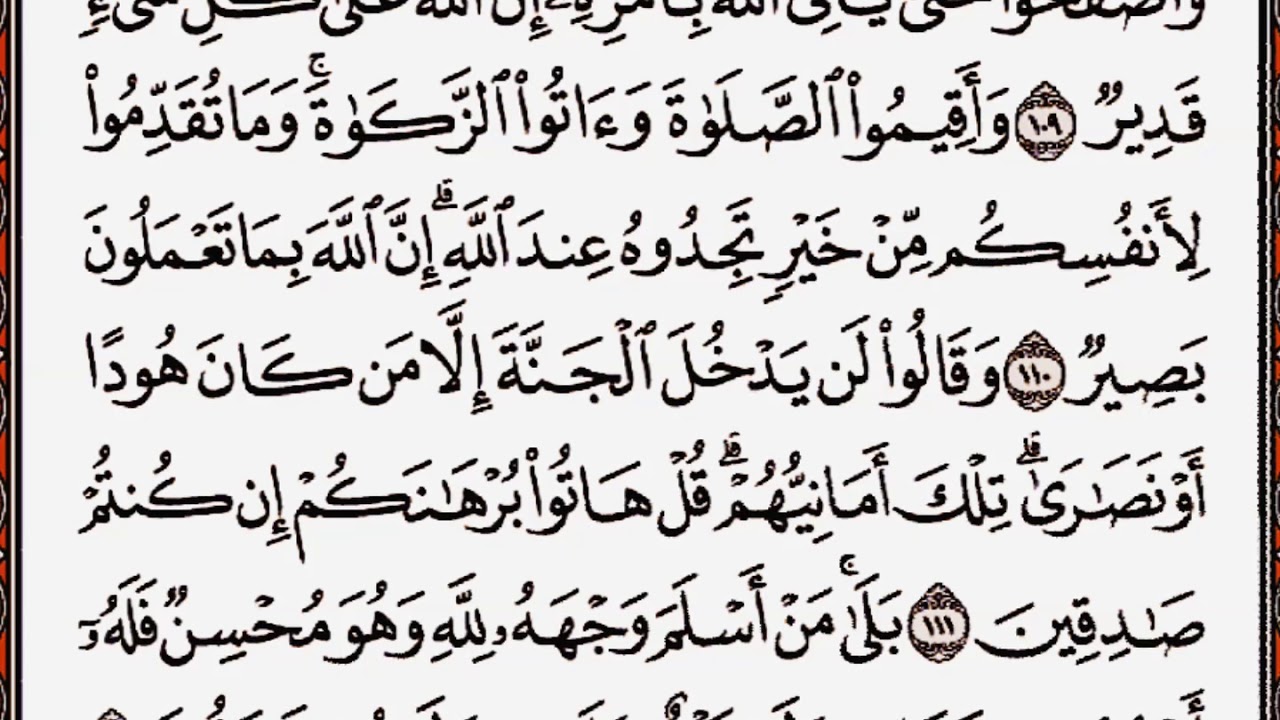 وَٱصْفَحُوا۟ حَتَّىٰ يَأْتِىَ ٱللَّهُ بِأَمْرِهِۦٓ إِنَّ ٱللَّهَ عَلَىٰ كُلِّ شَىْءٍ
قَدِيرٌ ١٠٩ وَأَقِيمُوا۟ ٱلصَّلَوٰةَ وَءَاتُوا۟ ٱلزَّكَوٰةَ ۚ وَمَا تُقَدِّمُوا۟
لِأَنفُسِكُم مِّنْ خَيْرٍ تَجِدُوهُ عِندَ ٱللَّهِ ۗ إِنَّ ٱللَّهَ بِمَا تَعْمَلُونَ
بَصِيرٌ ١١٠ وَقَالُوا۟ لَن يَدْخُلَ ٱلْجَنَّةَ إِلَّا مَن كَانَ هُودًا
أَوْ نَصَـٰرَىٰ ۗ تِلْكَ أَمَانِيُّهُمْ ۗ قُلْ هَاتُوا۟ بُرْهَـٰنَكُمْ إِن كُنتُمْ
صَـٰدِقِينَ ١١١ بَلَىٰ ۚ مَنْ أَسْلَمَ وَجْهَهُۥ لِلَّهِ وَهُوَ مُحْسِنٌ فَلَهُۥٓ